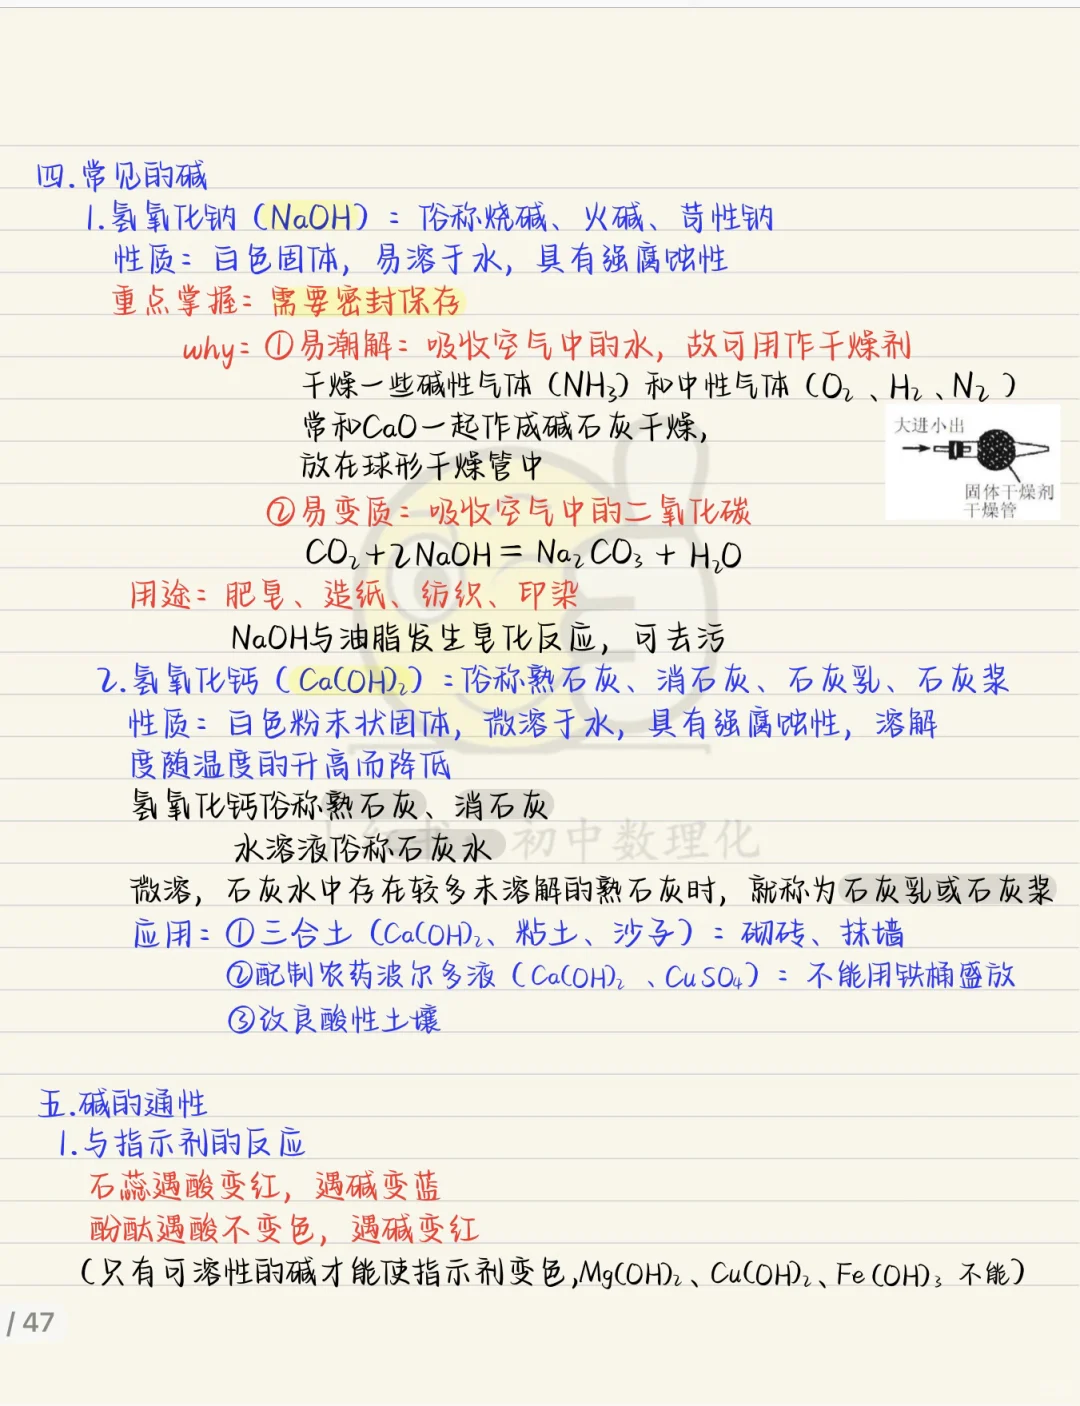 四.常见的碱
1.氢氧化钠（NaOH）：俗称烧碱、火碱、苛性钠
性质：白色固体，易溶于水，具有强腐蚀性
重点掌握：需要密封保存
why：①易潮解：吸收空气中的水，故可用作干燥剂
干燥一些碱性气体（NH₃）和中性气体（O₂、H₂、N₂）
常和CaO一起作成碱石灰干燥，
放在球形干燥管中
大进小出
固体干燥剂
干燥管
②易变质：吸收空气中的二氧化碳
CO₂+2NaOH=Na₂CO₃+H₂O
用途：肥皂、造纸、纺织、印染
NaOH与油脂发生皂化反应，可去污
2.氢氧化钙（Ca(OH)₂）：俗称熟石灰、消石灰、石灰乳、石灰浆
性质：白色粉末状固体，微溶于水，具有强腐蚀性，溶解
度随温度的升高而降低
氢氧化钙俗称熟石灰、消石灰
水溶液俗称石灰水
初中数理化
微溶，石灰水中存在较多未溶解的熟石灰时，就称为石灰乳或石灰浆
应用：①三合土（Ca(OH)₂、粘土、沙子）：砌砖、抹墙
②配制农药波尔多液（Ca(OH)₂、CuSO₄）：不能用铁桶盛放
③改良酸性土壤
五.碱的通性
1.与指示剂的反应
石蕊遇酸变红，遇碱变蓝
酚酞遇酸不变色，遇碱变红
（只有可溶性的碱才能使指示剂变色,Mg(OH)₂、Cu(OH)₂、Fe(OH)₃ 不能）
/ 47